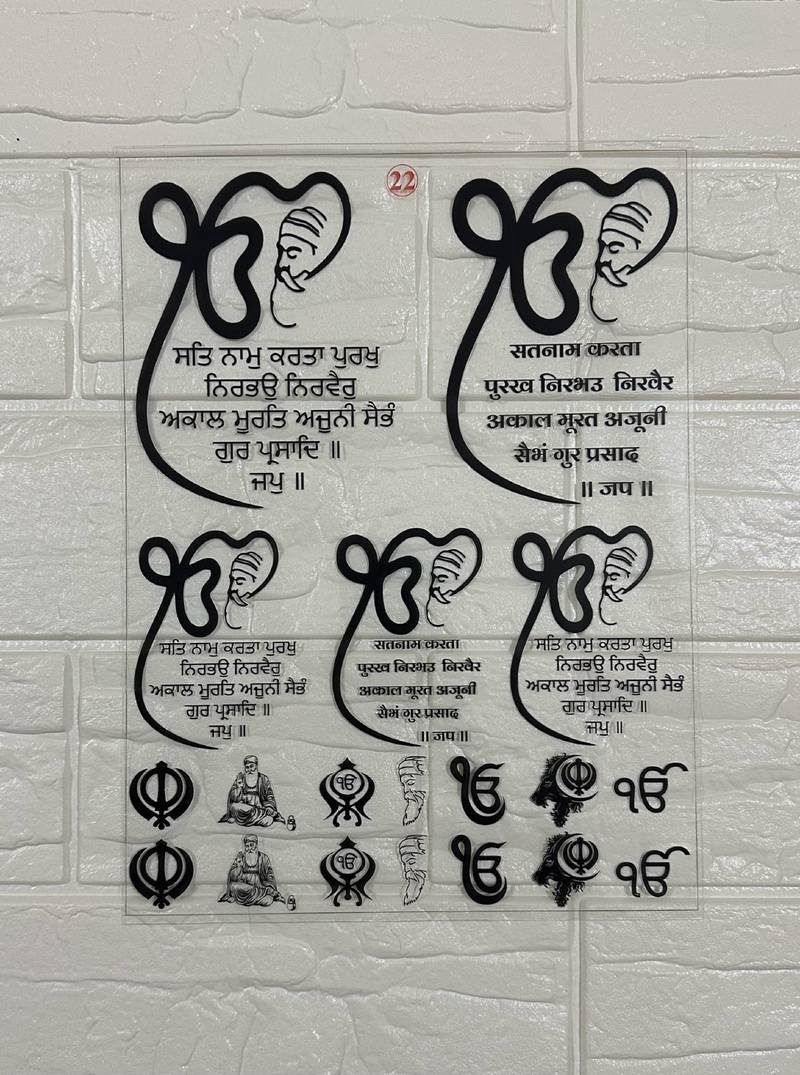 22
ਸਤਿ ਨਾਮੁ ਕਰਤਾ ਪੁਰਖੁ
ਨਿਰਭਉ ਨਿਰਵੈਰੁ
ਅਕਾਲ ਮੂਰਤਿ ਅਜੂਨੀ ਸੈਭੰ
ਗੁਰ ਪ੍ਰਸਾਦਿ ॥
ਜਪੁ ॥
सतनाम करता
पुरख निरभउ निरवैर
अकाल मूरत अजूनी
सैभं गुर प्रसाद
॥ जप ॥
ਸਤਿ ਨਾਮੁ ਕਰਤਾ ਪੁਰਖੁ
ਨਿਰਭਉ ਨਿਰਵੈਰੁ
ਅਕਾਲ ਮੂਰਤਿ ਅਜੂਨੀ ਸੈਭੰ
ਗੁਰ ਪ੍ਰਸਾਦਿ ॥
ਜਪੁ ॥
सतनाम करता
पुरख निरभउ निरवैर
अकाल मूरत अजूनी
सैभं गुर प्रसाद
॥ जप ॥
ਸਤਿ ਨਾਮੁ ਕਰਤਾ ਪੁਰਖੁ
ਨਿਰਭਉ ਨਿਰਵੈਰੁ
ਅਕਾਲ ਮੂਰਤਿ ਅਜੂਨੀ ਸੈਭੰ
ਗੁਰ ਪ੍ਰਸਾਦਿ ॥
ਜਪੁ ॥
ੴ ੴ ੴ
ੴ ੴ ੴ